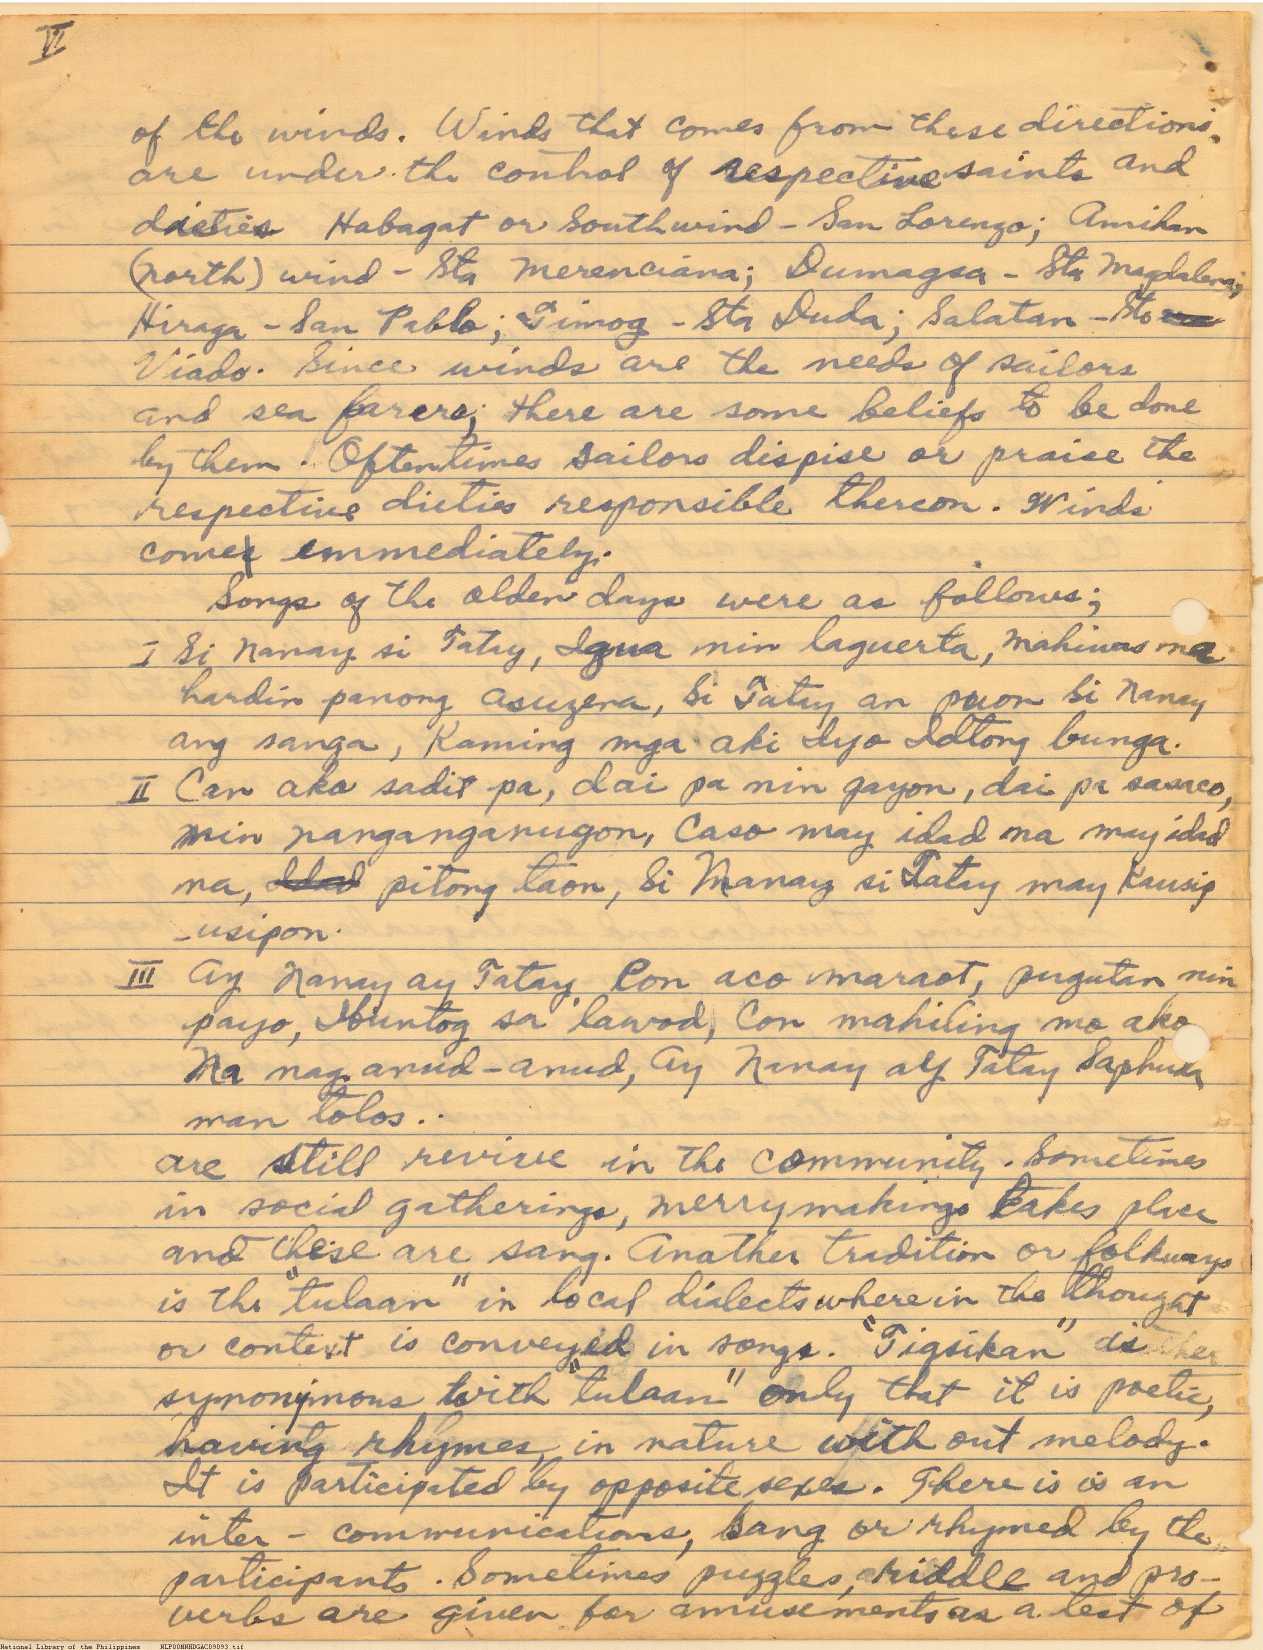 VI
of the winds. Winds that comes from these directions,
are under the control of respective saints and
dieties Habagat or Southwind - San Lorenzo; Amihan
(north) wind - Sta Merenciana; Dumagsa - Sta Magdalena;
Hiraga - San Pablo; Timog - Sta Duda; Salatan - Sto
Viado. Since winds are the needs of sailors
and sea farers; there are some beliefs to be done
by them. Oftentimes sailors dispise or praise the
respective dieties responsible thereon. Winds
come emmediately.
Songs of the olden days were as follows;
I Si Nanay si Tatay, Igua min laguerta, mahiwas na
hardin panong asuzena, Si Tatay an puon Si Nanay
ang sanga, Kaming mga aki Iyo Idtong bunga.
II Can ako sadit pa, dai pa nin gayon, dai pa sasaco,
min nanganganugon, Caso may idad na may idad
na, pitong taon, Si Manay si Tatay may Kausip
-usipon.
III Ay Nanay ay Tatay, Con aco maraot, pugutan nin
payo, Ibuntog sa lawod, Con mahiling mo ako
Na nag anud-anud, Ay Nanay ay Tatay Saphuda
man tolos..
are still revive in the community. Sometimes
in social gatherings, merrymakings takes place
and these are sang. Another tradition or folkways
is the "tulaan" in local dialects wherein the thought
or context is conveyed in songs. "Tigsikan" is
synonymous with "tulaan" only that it is poetic,
having rhymes, in nature with out melody.
It is participated by opposite sexes. There is is an
inter - communications, sang or rhymed by the
participants. Sometimes puzzles, riddle and pro-
verbs are given for amusements as a test of
National Library of the Philippines NLP00NNHDGAC09093.tif